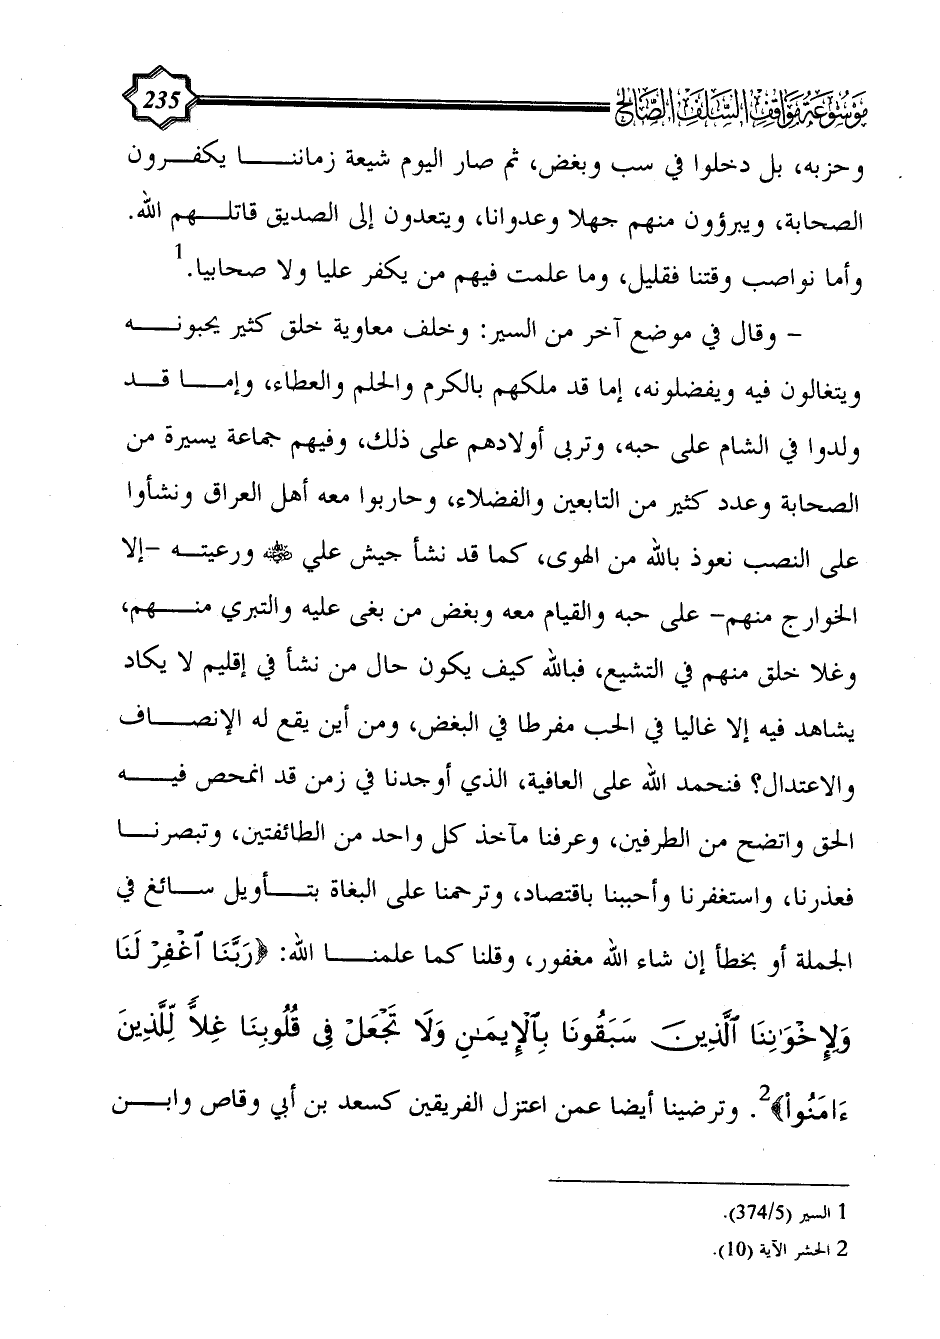 موسوعة مواقف السلف الصالح
235
وحزبه، بل دخلوا في سب وبغض، ثم صار اليوم شيعة زماننا يكفرون
الصحابة، ويبرؤون منهم جهلا وعدوانا، ويتعدون إلى الصديق قاتلهم الله.
وأما نواصب وقتنا فقليل، وما علمت فيهم من يكفر عليا ولا صحابيا.1
– وقال في موضع آخر من السير: وخلف معاوية خلق كثير يحبونه
ويتغالون فيه ويفضلونه، إما قد ملكهم بالكرم والحلم والعطاء، وإما قد
ولدوا في الشام على حبه، وتربى أولادهم على ذلك، وفيهم جماعة يسيرة من
الصحابة وعدد كثير من التابعين والفضلاء، وحاربوا معه أهل العراق ونشأوا
على النصب نعوذ بالله من الهوى، كما قد نشأ جيش علي ﷺ ورعيته –إلا
الخوارج منهم– على حبه والقيام معه وبغض من بغى عليه والتبري منهم،
وغلا خلق منهم في التشيع، فبالله كيف يكون حال من نشأ في إقليم لا يكاد
يشاهد فيه إلا غاليا في الحب مفرطا في البغض، ومن أين يقع له الإنصاف
والاعتدال؟ فنحمد الله على العافية، الذي أوجدنا في زمن قد انمحص فيه
الحق واتضح من الطرفين، وعرفنا مآخذ كل واحد من الطائفتين، وتبصرنا
فعذرنا، واستغفرنا وأحببنا باقتصاد، وترحمنا على البغاة بتأويل سائغ في
الجملة أو بخطأ إن شاء الله مغفور، وقلنا كما علمنا الله: ﴿رَبَّنَا ٱغْفِرْ لَنَا
وَلِإِخْوَٰنِنَا ٱلَّذِينَ سَبَقُونَا بِٱلْإِيمَٰنِ وَلَا تَجْعَلْ فِى قُلُوبِنَا غِلًّا لِّلَّذِينَ
ءَامَنُواْ﴾2. وترضينا أيضا عمن اعتزل الفريقين كسعد بن أبي وقاص وابن
1 السير (374/5).
2 الحشر الآية (10).